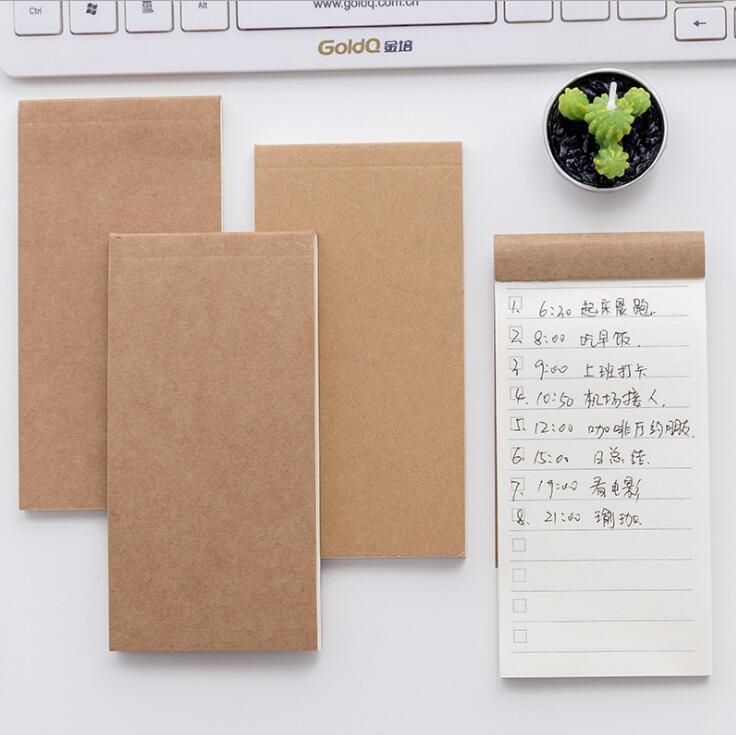 Ctrl
Alt
www.goldq.com.cn
GoldQ 金培
1. 6:30 起床晨跑.
2. 8:00 吃早饭.
3. 9:00 上班打卡
4. 10:50 机场接人.
5. 12:00 咖啡厅约朋友.
6. 15:00 日总结.
7. 19:00 看电影
8. 21:00 瑜珈.